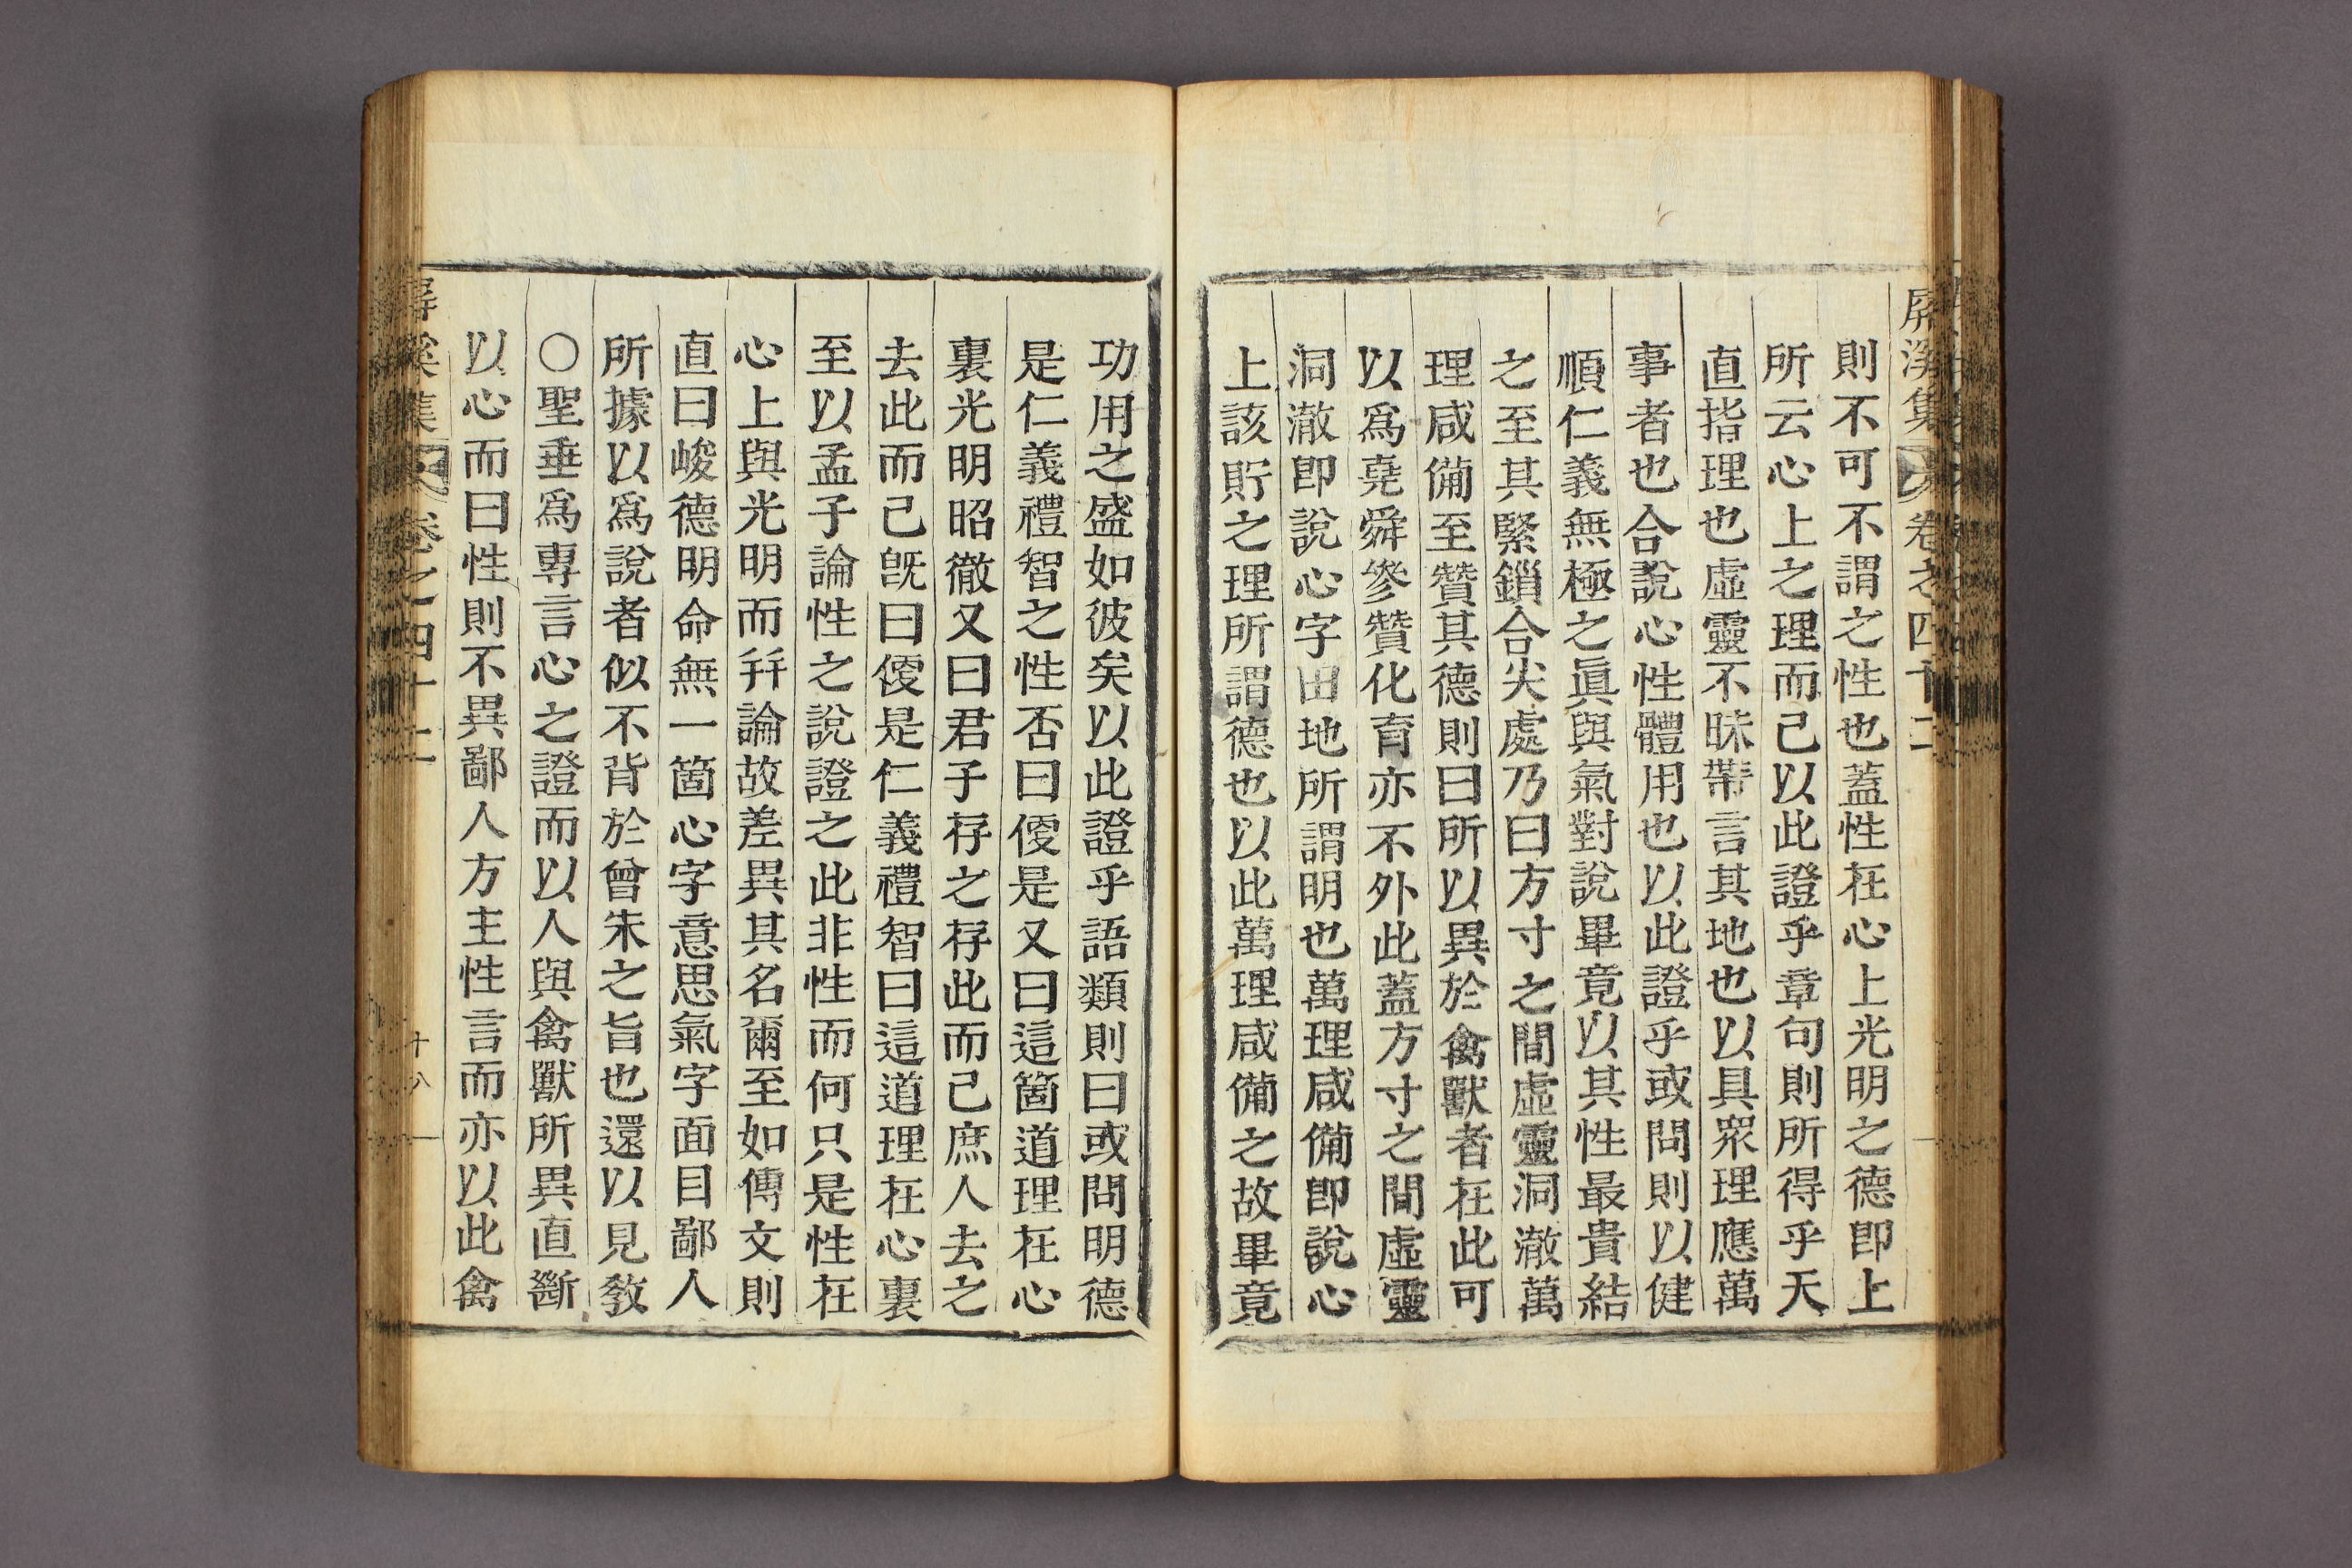 屏溪集 卷之四十二
則不可不謂之性也蓋性在心上光明之德卽上
所云心上之理而已以此證乎章句則所得乎天
直指理也虛靈不昧帶言其地也以具衆理應萬
事者也合說心性體用也以此證乎或問則以健
順仁義無極之眞與氣對說畢竟以其性最貴結
之至其緊鎖合尖處乃曰方寸之間虛靈洞澈萬
理咸備至贊其德則曰所以異於禽獸者在此可
以爲堯舜參贊化育亦不外此蓋方寸之間虛靈
洞澈卽說心字田地所謂明也萬理咸備卽說心
上該貯之理所謂德也以此萬理咸備之故畢竟
功用之盛如彼矣以此證乎語類則曰或問明德
是仁義禮智之性否曰便是又曰這箇道理在心
裏光明昭徹又曰君子存之存此而已庶人去之
去此而已旣曰便是仁義禮智曰這道理在心裏
至以孟子論性之說證之此非性而何只是性在
心上與光明而幷論故差異其名爾至如傳文則
直曰峻德明命無一箇心字意思氣字面目鄙人
所據以爲說者似不背於曾朱之旨也還以見敎
○聖垂爲專言心之證而以人與禽獸所異直斷
以心而曰性則不異鄙人方主性言而亦以此禽
屏溪集 卷之四十二 十八